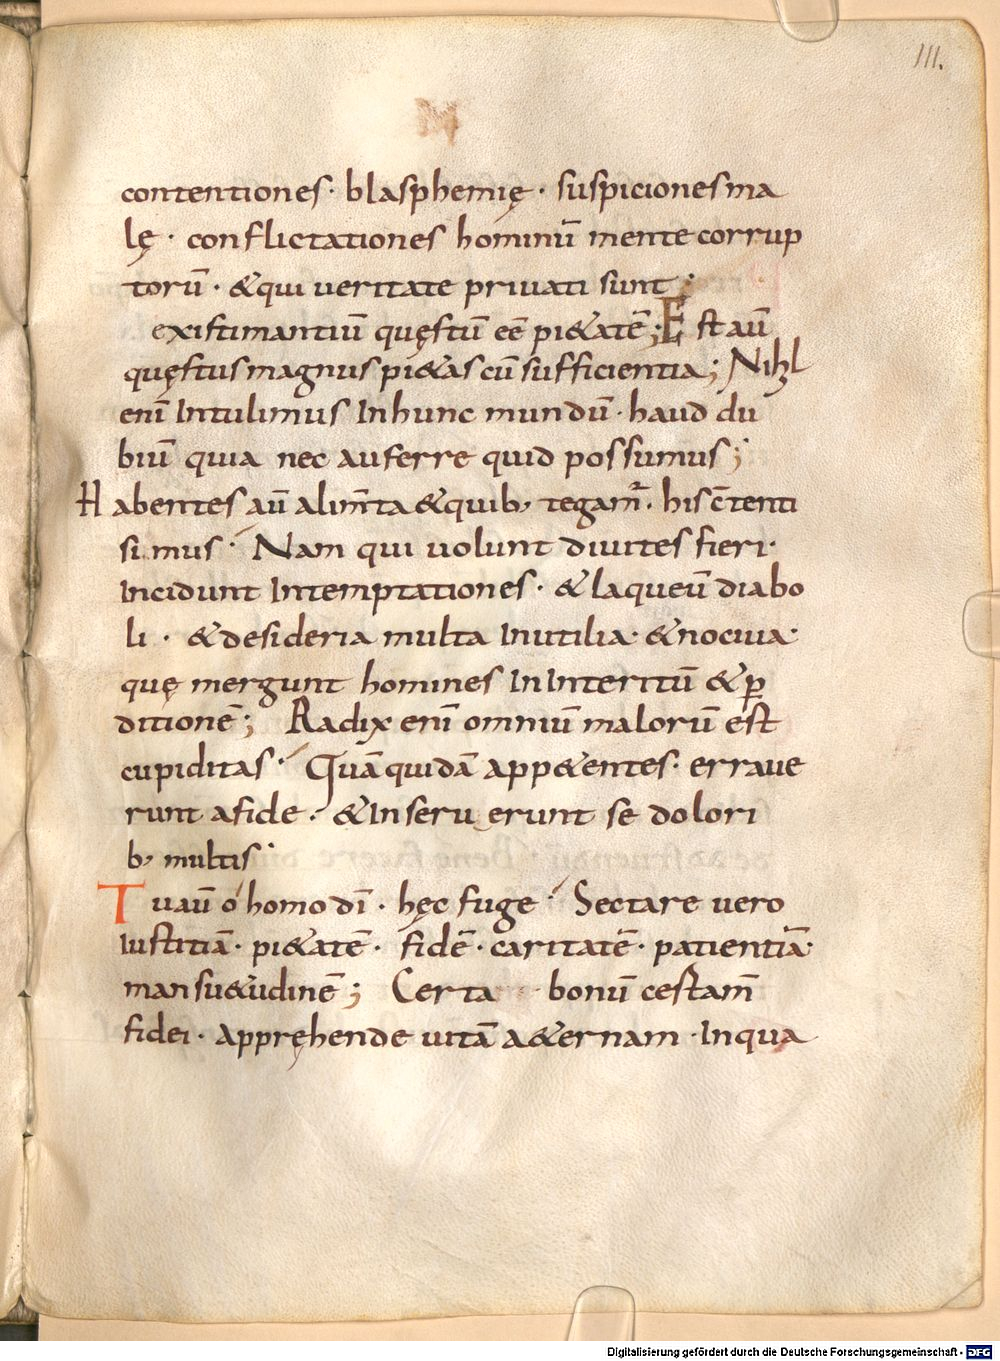 111.
contentiones· blasphemię· suspicionesma
lę· conflictationes hominū mentecorrup
torū· &qui ueritate priuati sunt;
existimantiū quęstū eē pi&atē; Est aū
quęstusmagnus pi&as cū sufficientia; Nihl
enī Intulimus Inhunc mundū· haud du
biū quia nec auferre quid possumus;
Habentes aū alim̄ta &quib; tegam̄· hisc̄tenti
simus· Nam qui uolunt diuites fieri·
Incidunt Intemptationes· & laqueū diabo
li· &desideria multa Inutilia· &nociua·
quę mergunt homines InInteritū &ꝑ
ditionē; Radix enī omniū malorū est
cupiditas· Quā quidā app&entes· erraue
runt afide· &Inseruerunt se dolori
b; multis·
Tuaū ó homo dī· hęc fuge· Sectare uero
Iustitiā· pi&atē· fidē· caritatē· patientiā·
mansu&udinē; Certa bonū cestam̄
fidei· Appręhende uitā a&ernam· Inqua
Digitalisierung gefördert durch die Deutsche Forschungsgemeinschaft - DFG